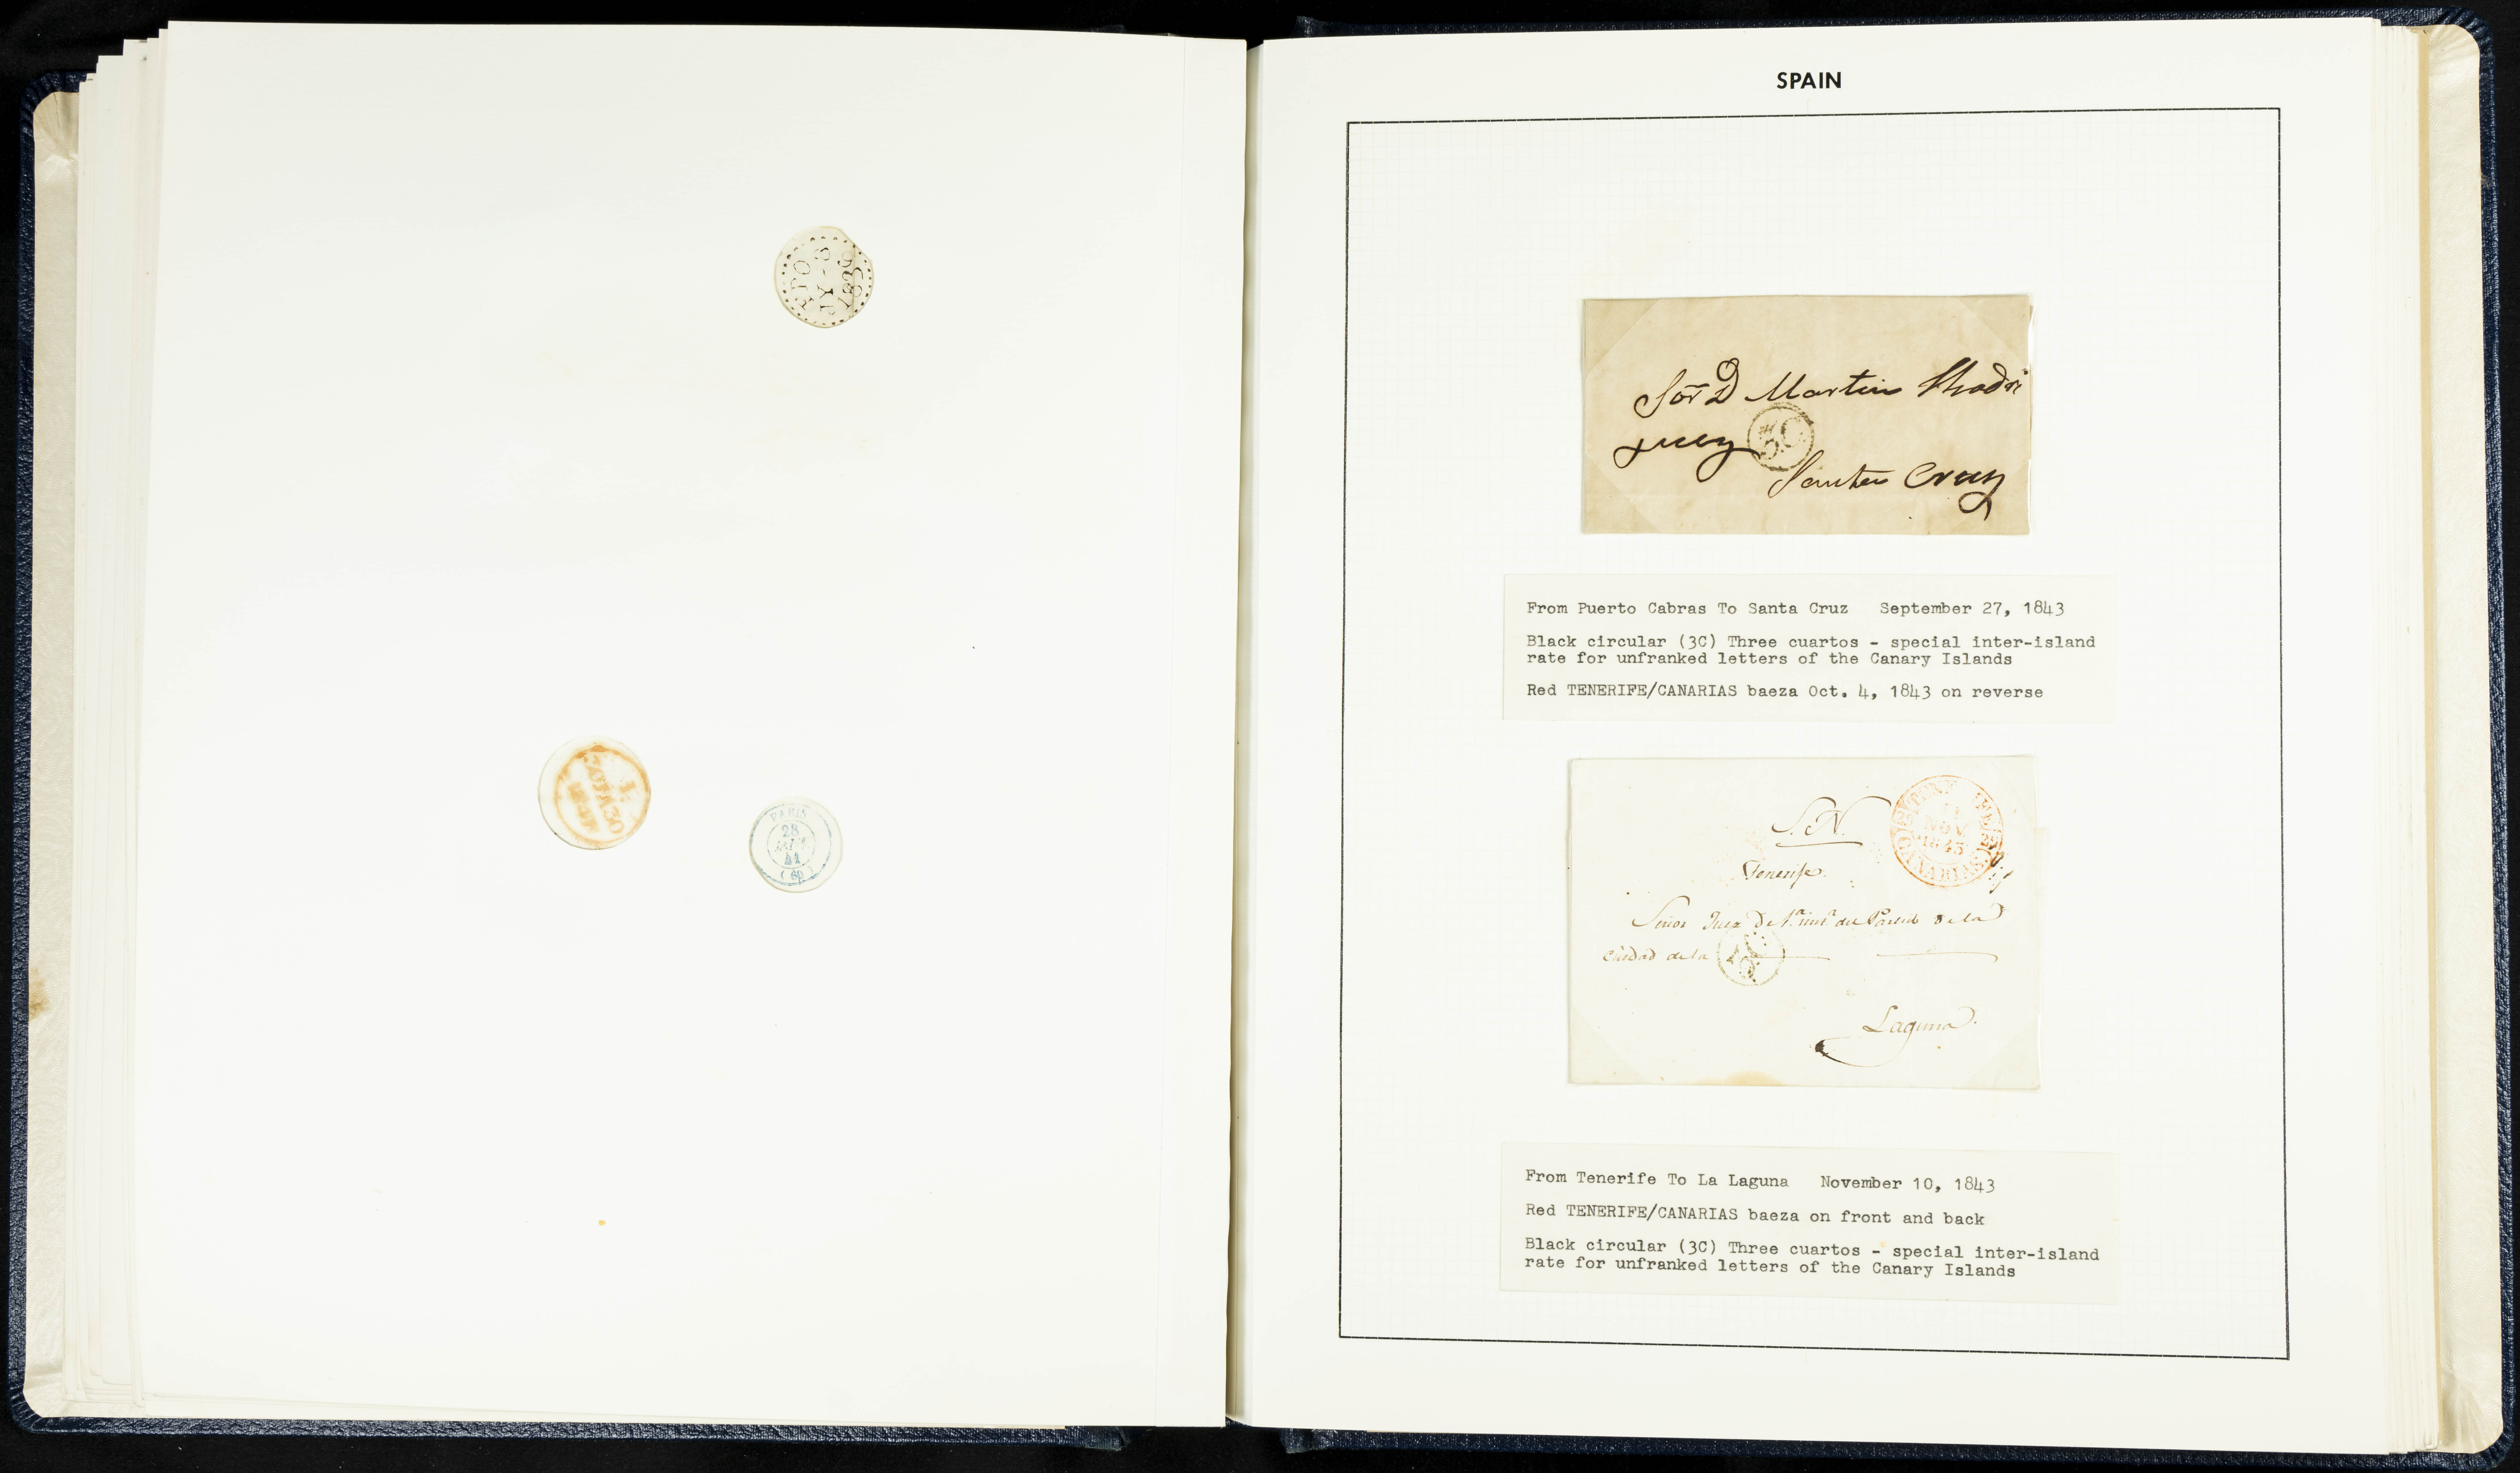 FPO
JY-8
1836
PARIS
28
41
(60)
SPAIN
Sor D Martin Rhodri
guez
3C
Santa Cruz
From Puerto Cabras To Santa Cruz September 27, 1843
Black circular (3C) Three cuartos - special inter-island
rate for unfranked letters of the Canary Islands
Red TENERIFE/CANARIAS baeza Oct. 4, 1843 on reverse
S. N.
NOV.
1843
CANARIAS
Tenerife.
Señor Juez De 1ª. instª del Partido de la
Ciudad de la
3C
Laguna.
From Tenerife To La Laguna November 10, 1843
Red TENERIFE/CANARIAS baeza on front and back
Black circular (3C) Three cuartos - special inter-island
rate for unfranked letters of the Canary Islands